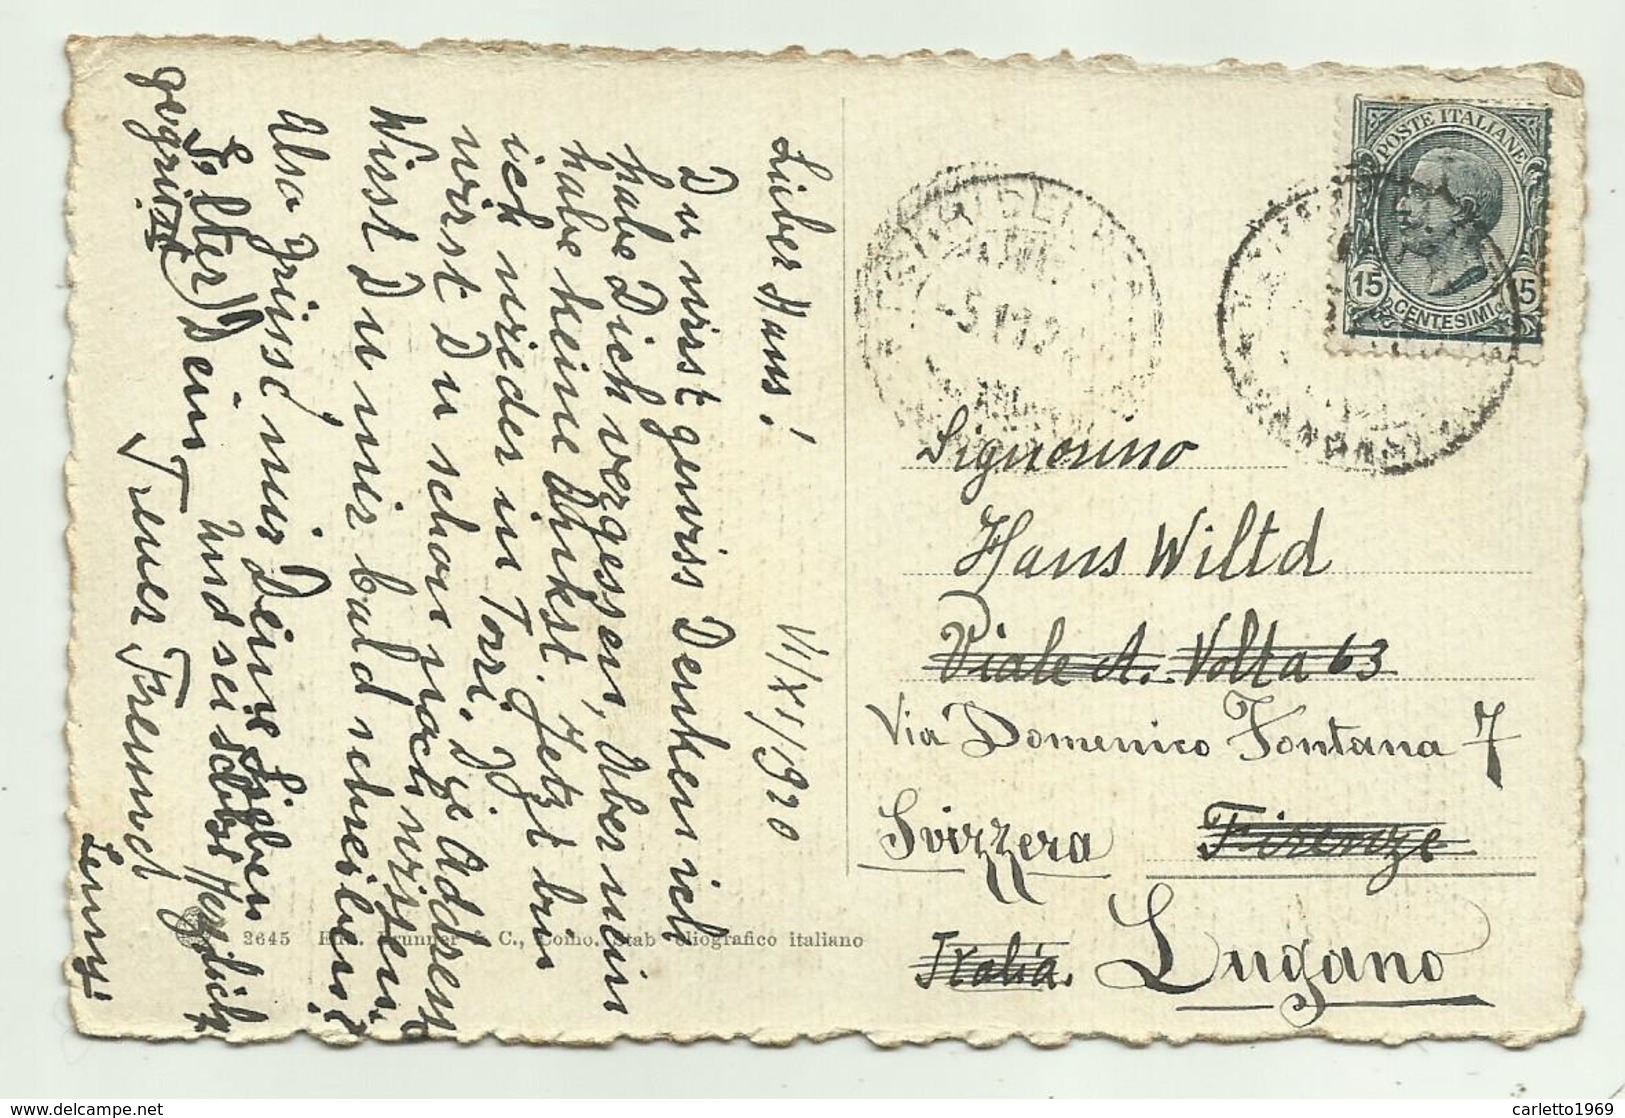 Lieber Hans! VI/XI/1920
Du wirst gewiss Denken ich
habe Dich vergessen, Aber nein
habe keine Angst. Jetzt bin
ich wieder in Torri. Die Addresse
wirst Du schon nach wissen.
Wirst Du mir bald schreiben?
Also grüsse mir Deine Lieben
Eltern) und sei selbst Herzlichst
gegrüsst Dein
Treuer Freund
POSTE ITALIANE
15 15
CENTESIMI
Signorino
Hans Wiltd
Viale A. Volta 63
Via Domenico Fontana 7
Svizzera Firenze
Italia. Lugano
2645 Brunner & C., Como. Stab eliografico italiano
carletto1969